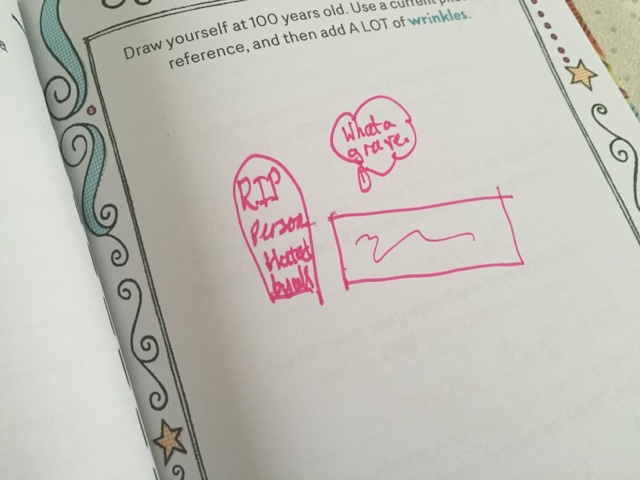 Draw yourself at 100 years old. Use a current
reference, and then add A LOT of wrinkles.
What a
grave.
RIP
Person